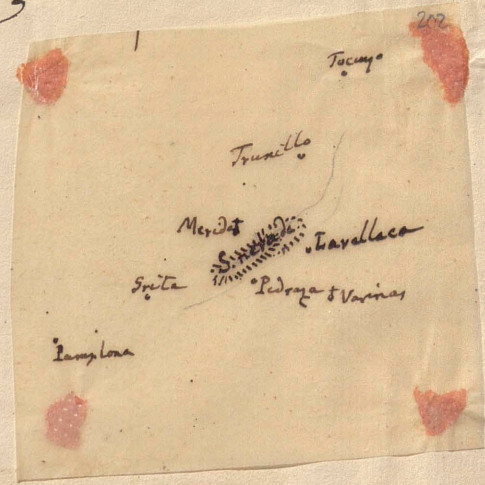 202
Tocuyo
Truxillo
Merida
S. nevada
Lavellaca
Grita
Pedraza
Varinas
Pamplona